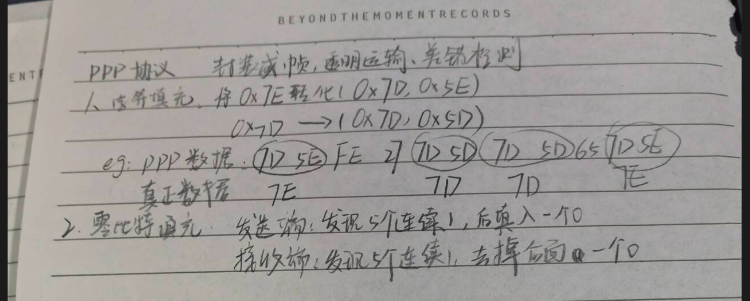 BEYONDTHEMOMENTRECORDS
ENT
PPP协议 封装成帧,透明运输、差错检测
1、字符填充,将0x7E转化(0x7D,0x5E)
0x7D →(0x7D,0x5D)
eg:PPP数据:7D 5E FE 27 7D 5D 7D 5D 65 7D 5E
真正数据 7E 7D 7D 7E
2.零比特填充. 发送端:发现5个连续1,后填入一个0
接收端:发现5个连续1,去掉后面一个0